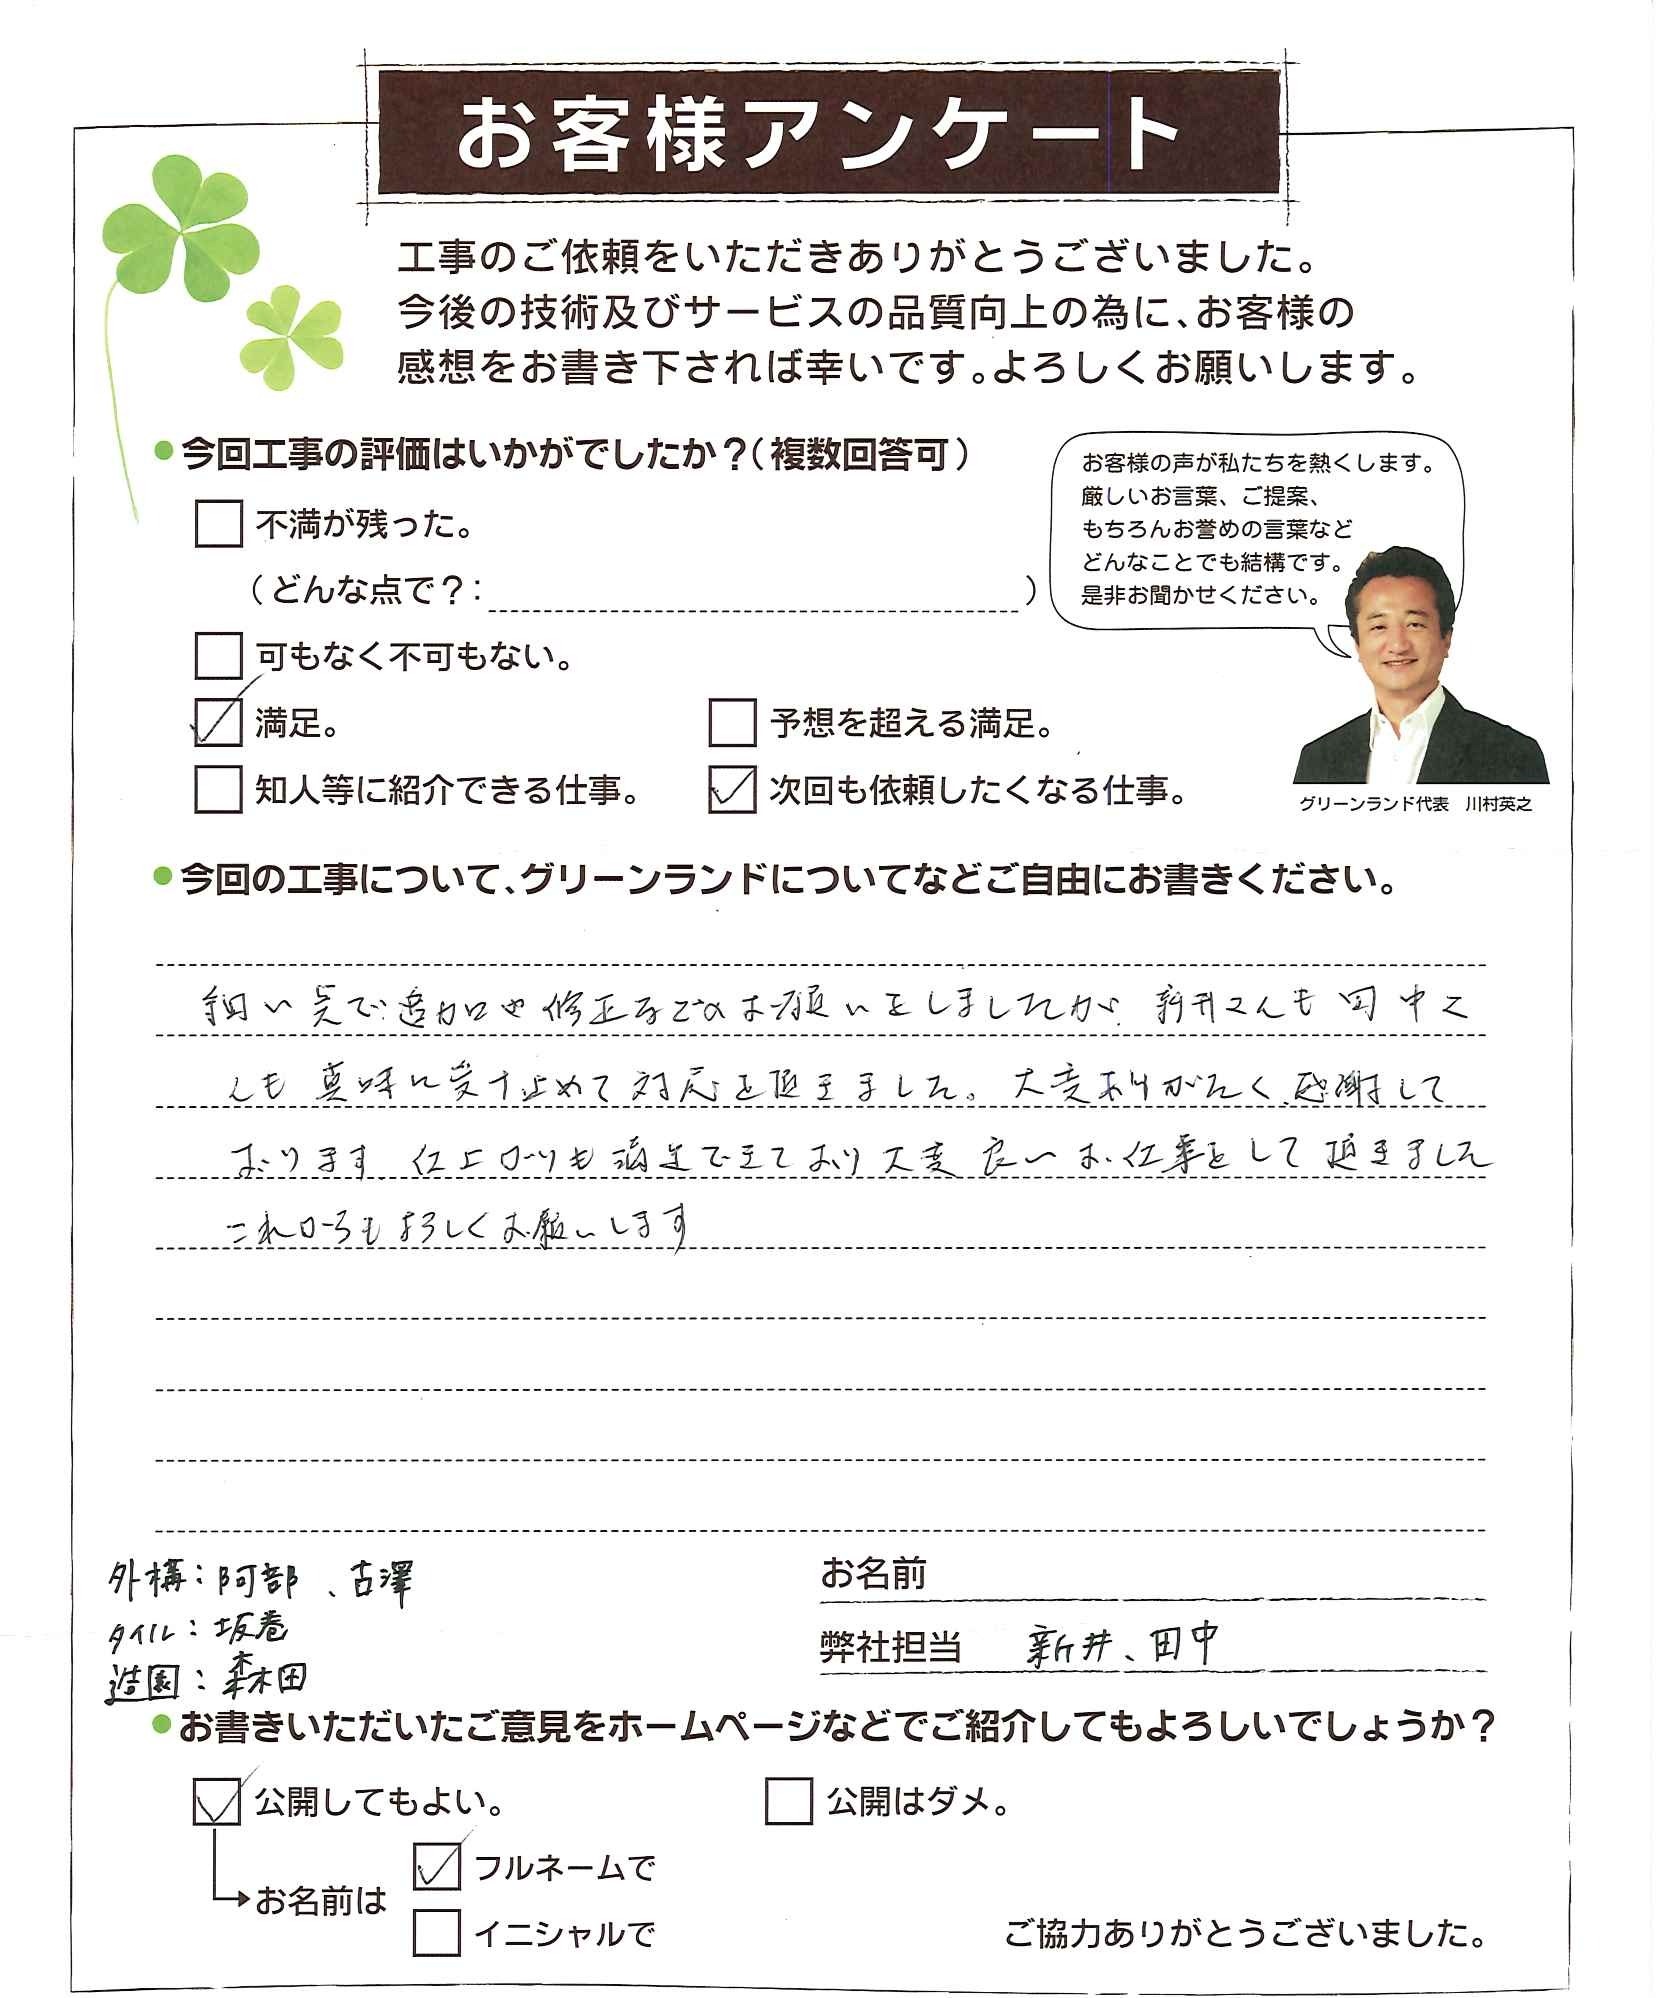 お客様アンケート
工事のご依頼をいただきありがとうございました。
今後の技術及びサービスの品質向上の為に、お客様の
感想をお書き下されば幸いです。よろしくお願いします。
●今回工事の評価はいかがでしたか？（複数回答可）
不満が残った。
（どんな点で？：　）
可もなく不可もない。
満足。
予想を超える満足。
知人等に紹介できる仕事。
次回も依頼したくなる仕事。
お客様の声が私たちを熱くします。
厳しいお言葉、ご提案、
もちろんお誉めの言葉など
どんなことでも結構です。
是非お聞かせください。
グリーンランド代表　川村英之
●今回の工事について、グリーンランドについてなどご自由にお書きください。
細い点で追加や修正などのお願いをしましたが 新井さんも田中さ
んも 真味に受け止めて対応を頂きました。大変ありがたく、感謝して
おります 仕上がりも満足できており大変良いお仕事をして頂きました
これからもよろしくお願いします
外構：阿部、古澤
タイル：坂巻
造園：森田
お名前
弊社担当　新井、田中
●お書きいただいたご意見をホームページなどでご紹介してもよろしいでしょうか？
公開してもよい。
公開はダメ。
お名前は
フルネームで
イニシャルで
ご協力ありがとうございました。